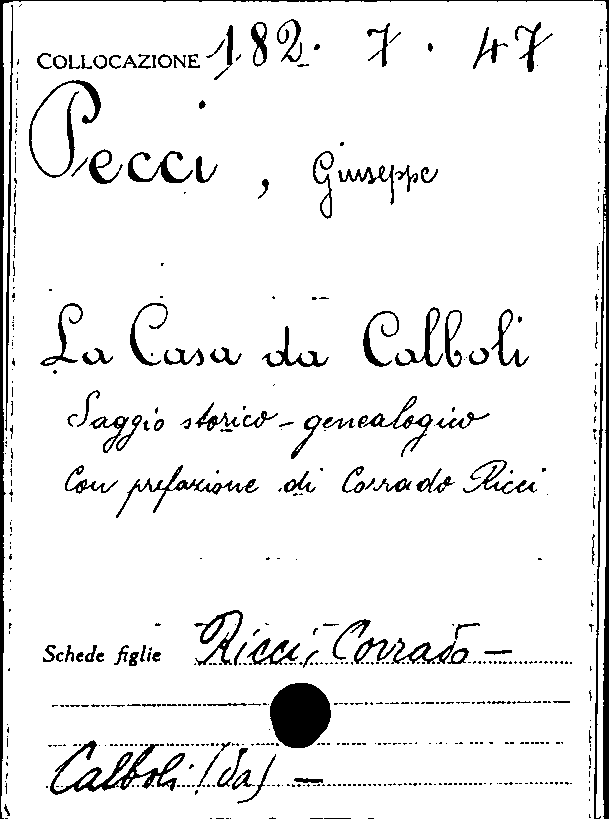 COLLOCAZIONE 182. 7. 47
Pecci, Giuseppe
La Casa da Calboli
Saggio storico-genealogico
Con prefazione di Corrado Ricci
Schede figlie Ricci, Corrado —
Calboli (da) —